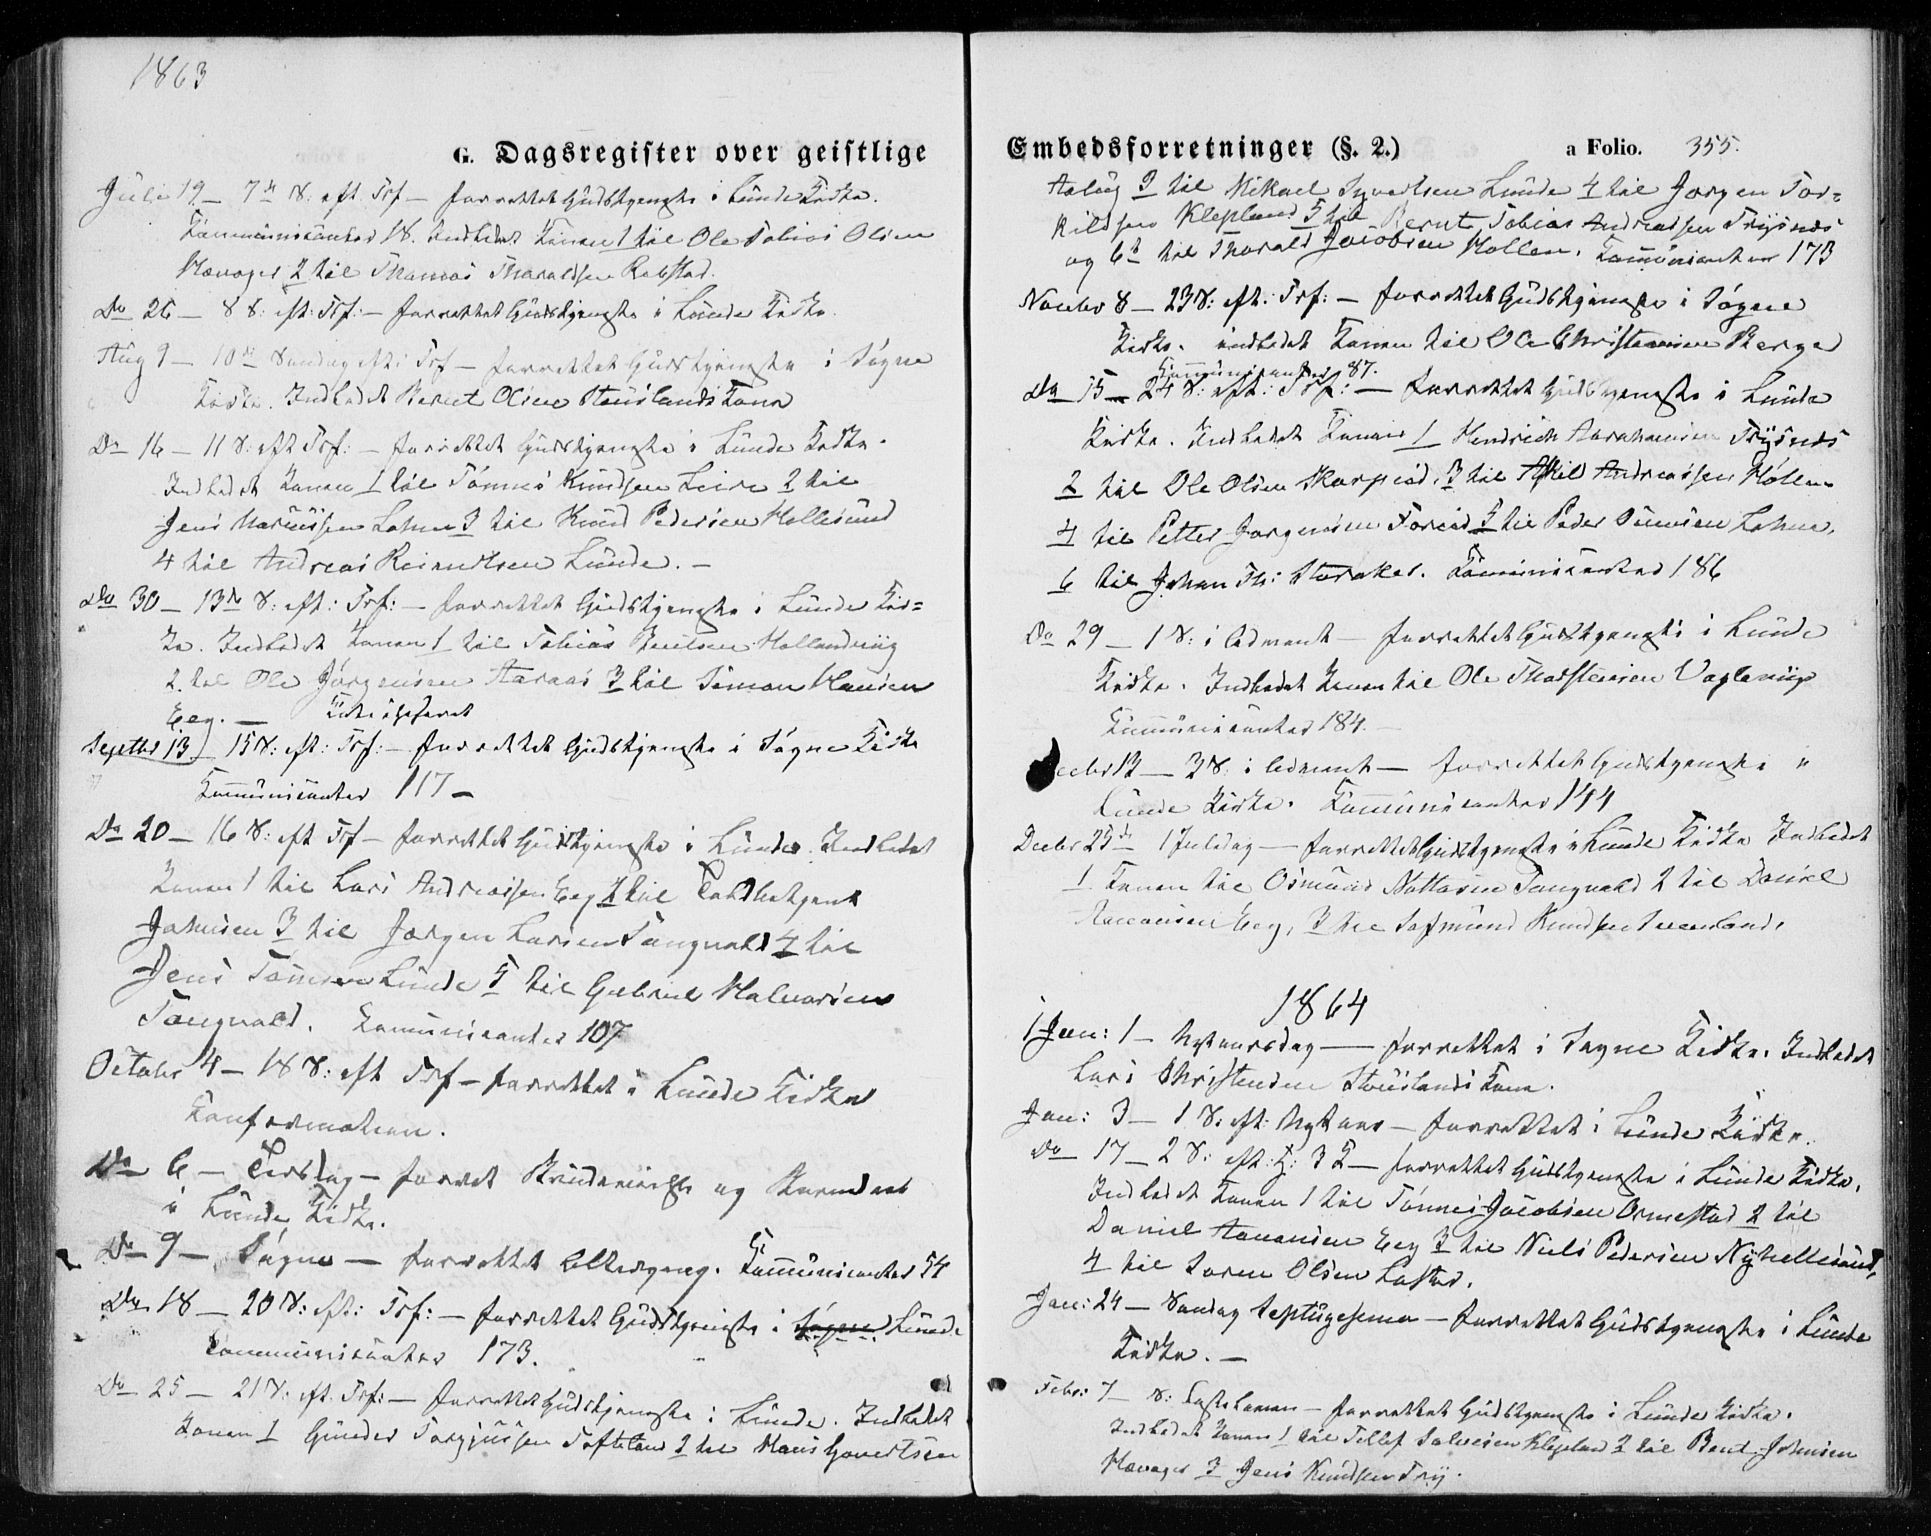 1863
G. Dagsregister over geistlige
Juli 19 – 7de S: eft Trf – forrettet Gudstjeneste i Lunde Kirke.
Kommunikanter 18. Indledet Konen 1 til Ole Tobias Olsen
Havager 2 til Thomas Tharaldsen Repstad.
Do 26 – 8 S: eft: Trf: – forrettet Gudstjeneste i Lunde Kirke.
Aug 9 – 10de Søndag eft: Trf – forrettet Gudstjeneste i Søgne
Kirke. Indledet Bernt Olsen Stauslands Kone
Do 16 – 11 S: eft Trf: – forrettet Gudstjeneste i Lunde Kirke.
Indledet Konen 1 til Tønnes Knudsen Leire 2 til
Jens Marcussen Lohne 3 til Knud Pedersen Hellesund
4 til Andreas Reinertsen Lunde. –
Do 30 – 13de S: eft: Trf: – forrettet Gudstjeneste i Lunde Kir=
ke. Indledet Konen 1 til Tobias Hollandviig
2 til Ole Jørgensen Aaraas 3 til Simon Hansen
Eeg. –
Septbr 13 – 15 S: eft: Trf: – forrettet Gudstjeneste i Søgne Kirke
Kommunikanter 117 –
Do 20 – 16 S: eft Trf – forrettet Gudstjeneste i Lunde. Indledet
Konen 1 til Lars Andreassen Eeg 2 til
Johnsen 3 til Jørgen Larsen Tangvald 4 til
Jens Lunde 5 til Gabriel Halvorsen
Tangvald. Kommunikanter 107
October 4 – 18 S: eft Trf – forrettet i Lunde Kirke
Konfirmation.
Do 6 – Tirsdag – forret Brudevielse og Barnedaab
i Lunde Kirke.
Do 9 – Søgne – forrettet Altergang. Kommunikanter 54
Do 18 – 20 S: eft: Trf: – forrettet Gudstjeneste i Søgne Lunde
Communikanter 173.
Do 25 – 21 S: eft. Trf: – forrettet Gudstjeneste i Lunde. Indledet
Konen 1 Gunder Torgjussen Tofteland 2 til Hans Govertsen
Embedsforretninger (§. 2.)
a Folio. 355.
3 til Mikael Syvertsen Lunde 4 til Jørgen Tor=
kildsen Klepland 5 til Bernt Tobias Andreassen Trysnes
og 6 til Tharald Jacobsen Høllen. Kommunicanter 173
Novbr 8 – 23 S: eft: Trf: – forrettet Gudstjeneste i Søgne
Kirke. indledet Konen til Ole Christensen Berge
Kommunikanter 87.
Do 15 – 24 S: eft: Trf: – forrettet Gudstjeneste i Lunde
Kirke. Indledet Konen 1 Hendrich Abrahamsen Trysnes
2 til Ole Olsen 3 til Askild Andreassen Høllen
4 til Petter Jørgensen 5 til Peder Lohne,
6 til Johan Th: Storaker. Kommunikanter 186
Do 29 – 1 S: i Advent – forrettet Gudstjeneste i Lunde
Kirke. Indledet Konen til Ole Thorstensen
Kommunikanter 184. –
Decbr 13 – 3 S: i Advent – forrettet Gudstjeneste i
Lunde Kirke. Kommunikanter 144
Decbr 25de 1 Juledag – forrettet Gudstjeneste i Lunde Kirke Indledet
1 Konen til Osmund Tangvald 2 til Daniel
Aanonsen Eeg, 3 til Knudsen
1864
Jan: 1 – Nytaarsdag – forrettet i Søgne Kirke. Indledet
Lars Christensen Stauslands Kone.
Jan: 3 – 1 S: eft: Nytaar – forrettet i Lunde Kirke.
Do 17 – 2 S: eft: H: 3 K – forrettet Gudstjeneste i Lunde Kirke.
Indledet Konen 1 til Tønnes Jacobsen Ormestad 2 til
Daniel Aanonsen Eeg 3 til Niels Pedersen Nyhellesund,
4 til Søren Olsen
Jan: 24 – Søndag Septugesema – forrettet Gudstjeneste i Lunde
Kirke. –
Febr: 7 – S: Fastelaven – forrettet Gudstjeneste i Lunde Kirke.
Indledet Konen 1 til Tellef Salvesen Klepland 2 til Bent Johnsen
Havager 3 Jens Knudsen Try.